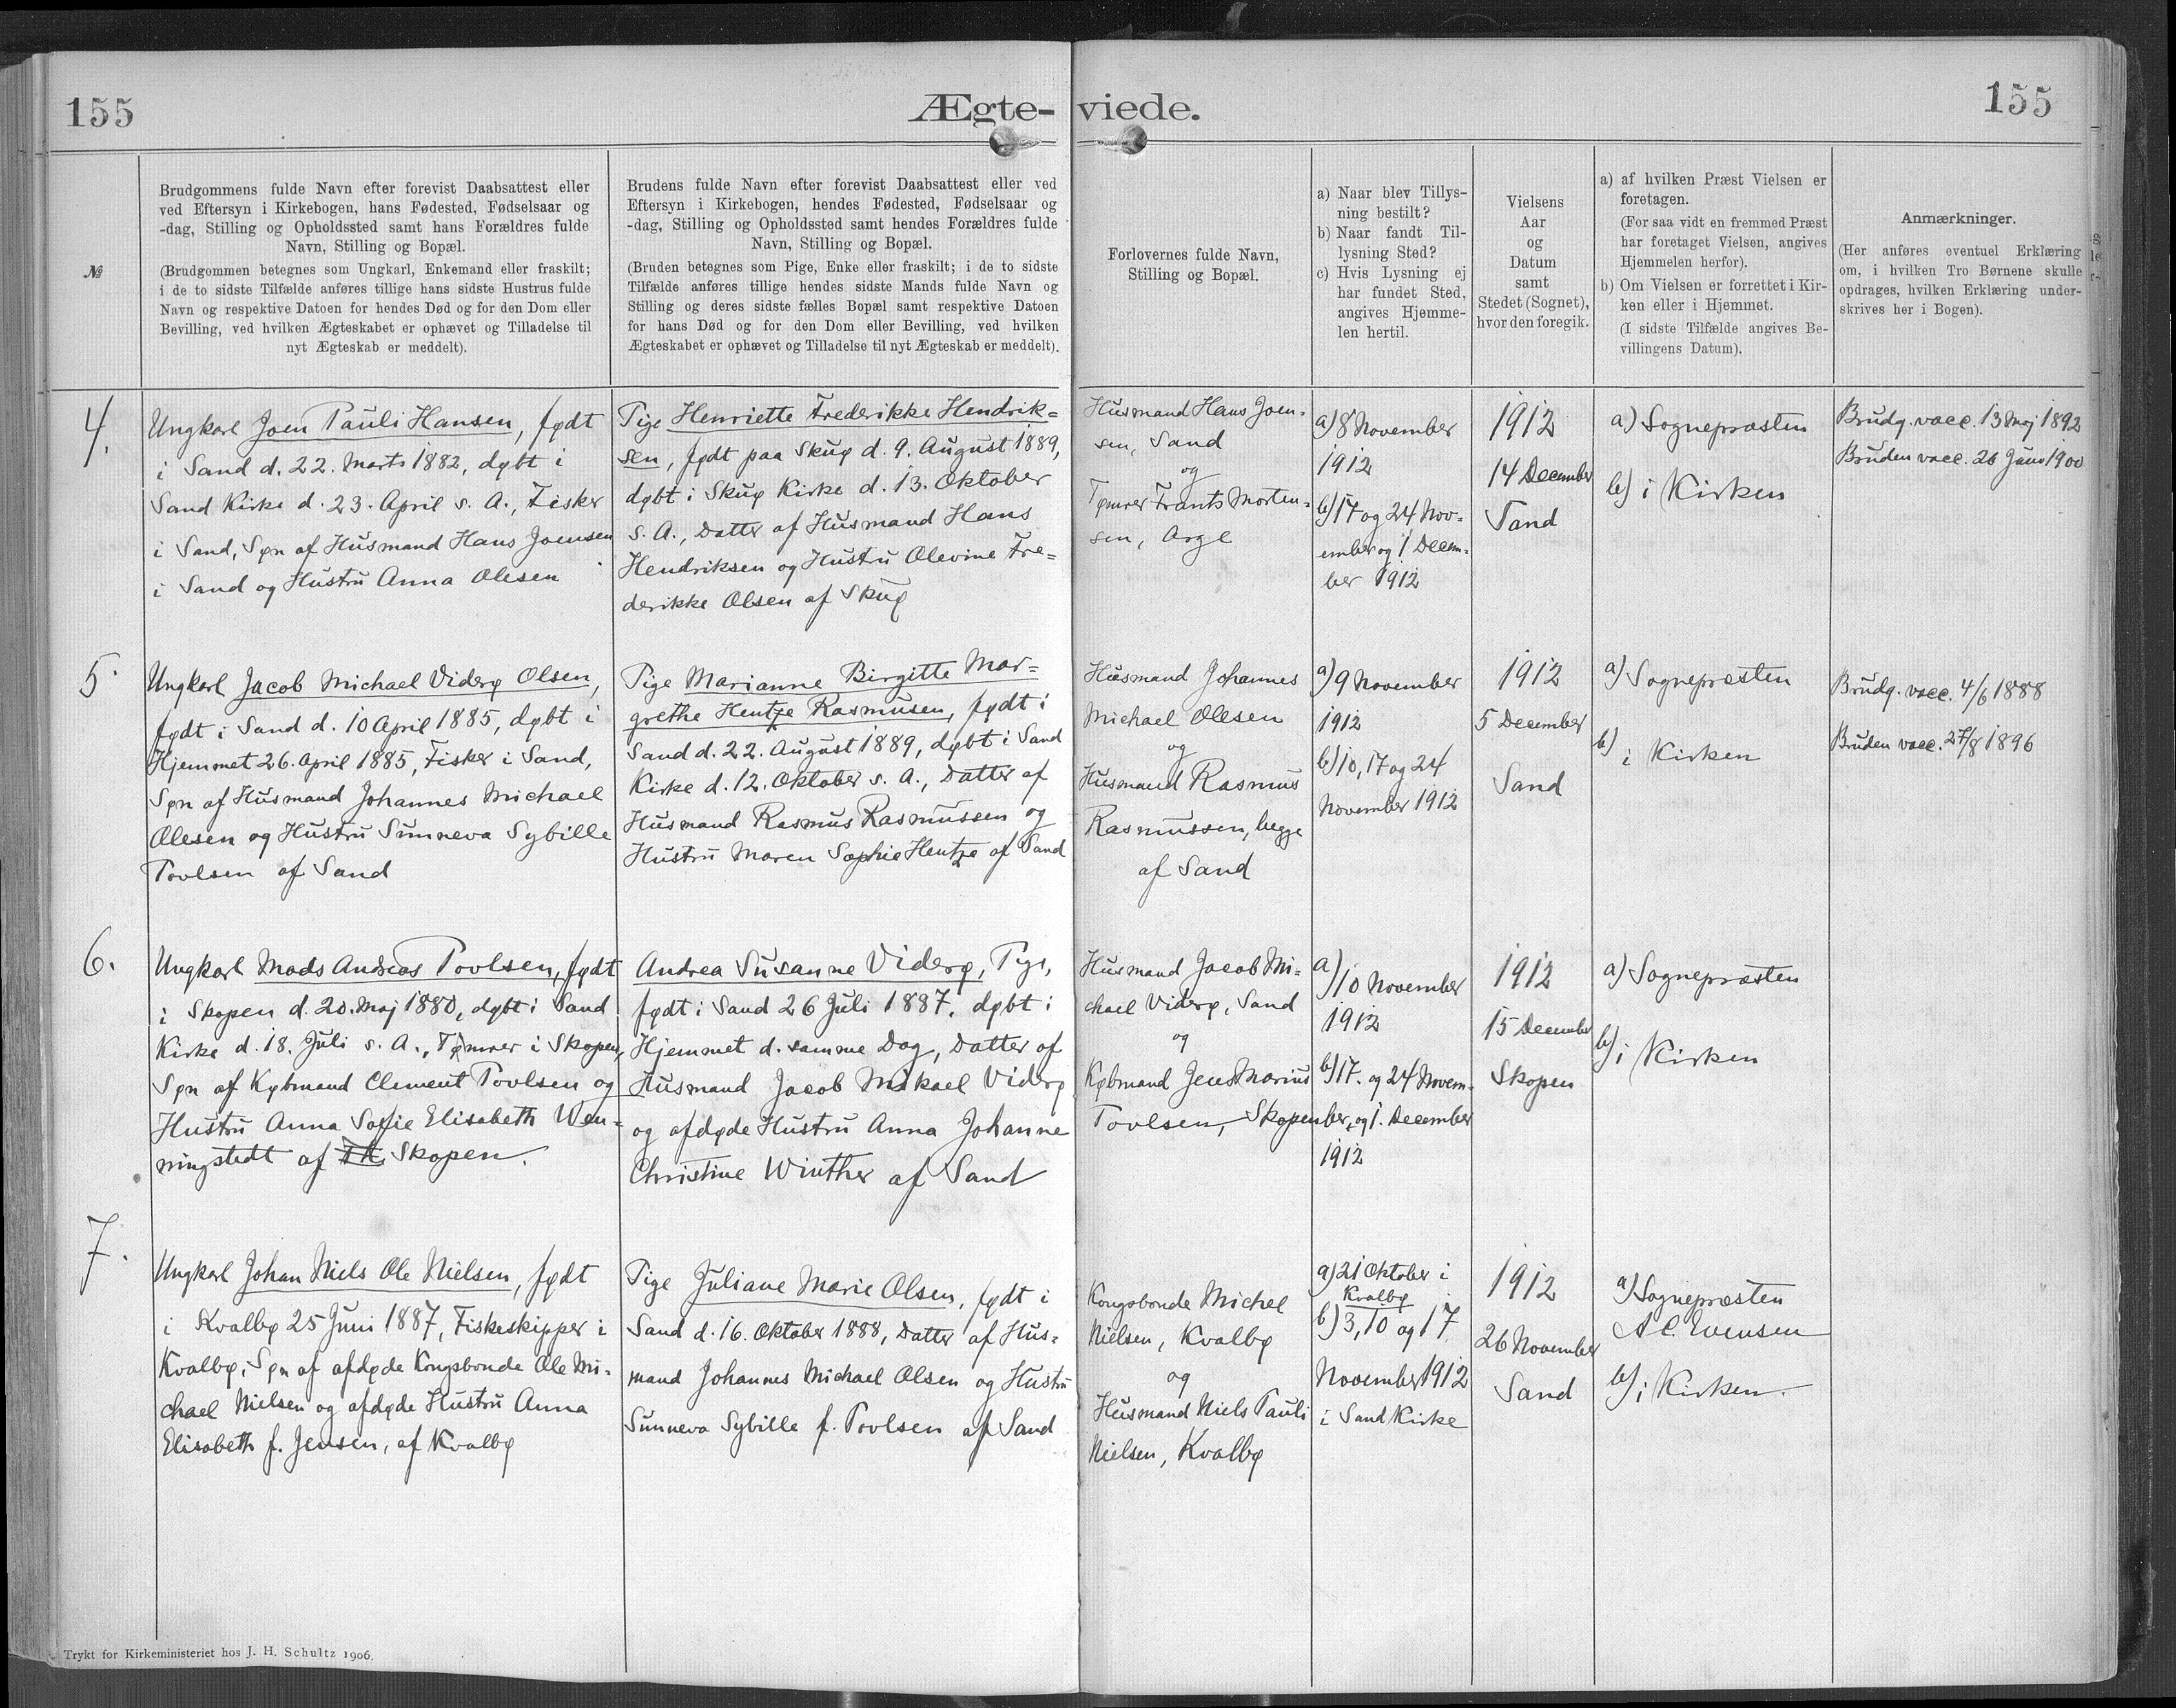 155
Ægte-viede.
155
№
Brudgommens fulde Navn efter forevist Daabsattest eller
ved Eftersyn i Kirkebogen, hans Fødested, Fødselsaar og
-dag, Stilling og Opholdssted samt hans Forældres fulde
Navn, Stilling og Bopæl.
(Brudgommen betegnes som Ungkarl, Enkemand eller fraskilt;
i de to sidste Tilfælde anføres tillige hans sidste Hustrus fulde
Navn og respektive Datoen for hendes Død og for den Dom eller
Bevilling, ved hvilken Ægteskabet er ophævet og Tilladelse til
nyt Ægteskab er meddelt).
Brudens fulde Navn efter forevist Daabsattest eller ved
Eftersyn i Kirkebogen, hendes Fødested, Fødselsaar og
-dag, Stilling og Opholdssted samt hendes Forældres fulde
Navn, Stilling og Bopæl.
(Bruden betegnes som Pige, Enke eller fraskilt; i de to sidste
Tilfælde anføres tillige hendes sidste Mands fulde Navn og
Stilling og deres sidste fælles Bopæl samt respektive Datoen
for hans Død og for den Dom eller Bevilling, ved hvilken
Ægteskabet er ophævet og Tilladelse til nyt Ægteskab er meddelt).
Forlovernes fulde Navn,
Stilling og Bopæl.
a) Naar blev Tillys-
ning bestilt?
b) Naar fandt Til-
lysning Sted?
c) Hvis Lysning ej
har fundet Sted,
angives Hjemme-
len hertil.
Vielsens
Aar
og
Datum
samt
Stedet (Sognet),
hvor den foregik.
a) af hvilken Præst Vielsen er
foretagen.
(For saa vidt en fremmed Præst
har foretaget Vielsen, angives
Hjemmelen herfor).
b) Om Vielsen er forrettet i Kir-
ken eller i Hjemmet.
(I sidste Tilfælde angives Be-
villingens Datum).
Anmærkninger.
(Her anføres eventuel Erklæring
om, i hvilken Tro Børnene skulle
opdrages, hvilken Erklæring under-
skrives her i Bogen).
4.
Ungkarl Joen Pauli Hansen, født
i Sand d. 22. Marts 1882, døbt i
Sand Kirke d. 23. April s. A., Fisker
i Sand, Søn af Husmand Hans Joensen
i Sand og Hustru Anna Olesen
Pige Henriette Frederikke Hendrik=
sen, født paa Skuø d. 9. August 1889,
døbt i Skuø Kirke d. 13. Oktober
s. A., Datter af Husmand Hans
Hendriksen og Hustru Olevine Fre=
derikke Olsen af Skuø
Husmand Hans Joen-
sen, Sand
og
Tømrer Frants Morten-
sen, Arge
a) 8 November
1912
b) 17 og 24 Nov-
ember og 1 Decem-
ber 1912
1912
14 December
Sand
a) Sognepræsten
b) i Kirken
Brudg. vacc. 13 Maj 1892
Bruden vacc. 26 Juni 1900
5.
Ungkarl Jacob Michael Viderø Olsen,
født i Sand d. 10 April 1885, døbt i
Hjemmet 26. April 1885, Fisker i Sand,
Søn af Husmand Johannes Michael
Olesen og Hustru Sunneva Sybille
Poulsen af Sand
Pige Marianne Birgitte Mar=
grethe Hentze Rasmusen, født i
Sand d. 22. August 1889, døbt i Sand
Kirke d. 12. Oktober s. A., Datter af
Husmand Rasmus Rasmussen og
Hustru Maren Sophie Hentze af Sand
Husmand Johannes
Michael Olesen
og
Husmand Rasmus
Rasmussen, begge
af Sand
a) 9 November
1912
b) 10, 17 og 24
November 1912
1912
5 December
Sand
a) Sognepræsten
b) i Kirken
Brudg. vacc. 4/6 1888
Bruden vacc. 27/8 1896
6.
Ungkarl Mads Andreas Poulsen, født
i Skopen d. 20. Maj 1880, døbt i Sand
Kirke d. 18. Juli s. A., Tømrer i Skopen,
Søn af Købmand Clement Poulsen og
Hustru Anna Sofie Elisabeth Wen-
ningstedt af Skopen.
Andrea Susanne Viderø, Pige,
født i Sand 26 Juli 1887, døbt i
Hjemmet d. samme Dag, Datter af
Husmand Jacob Mikael Viderø
og afdøde Hustru Anna Johanne
Christine Winther af Sand
Husmand Jacob Mi=
chael Viderø, Sand
og
Købmand Jens Marius
Poulsen, Skopen
a) 10 November
1912
b) 17. og 24 Novem-
ber, og 1. December
1912
1912
15 December
Skopen
a) Sognepræsten
b) i Kirken
7.
Ungkarl Johan Niels Ole Nielsen, født
i Kvalbø 25 Juni 1887, Fiskeskipper i
Kvalbø, Søn af afdøde Kongsbonde Ole Mi-
chael Nielsen og afdøde Hustru Anna
Elisabeth f. Jensen, af Kvalbø
Pige Juliane Marie Olsen, født i
Sand d. 16. Oktober 1888, Datter af Hus-
mand Johannes Michael Olsen og Hustru
Sunneva Sybille f. Poulsen af Sand
Kongsbonde Michel
Nielsen, Kvalbø
og
Husmand Niels Pauli
Nielsen, Kvalbø
a) 21 Oktober i
Kvalbø
b) 3, 10 og 17
November 1912
i Sand Kirke
1912
26 November
Sand
a) Sognepræsten
A C. Evensen
b) i Kirken.
Trykt for Kirkeministeriet hos J. H. Schultz 1906.